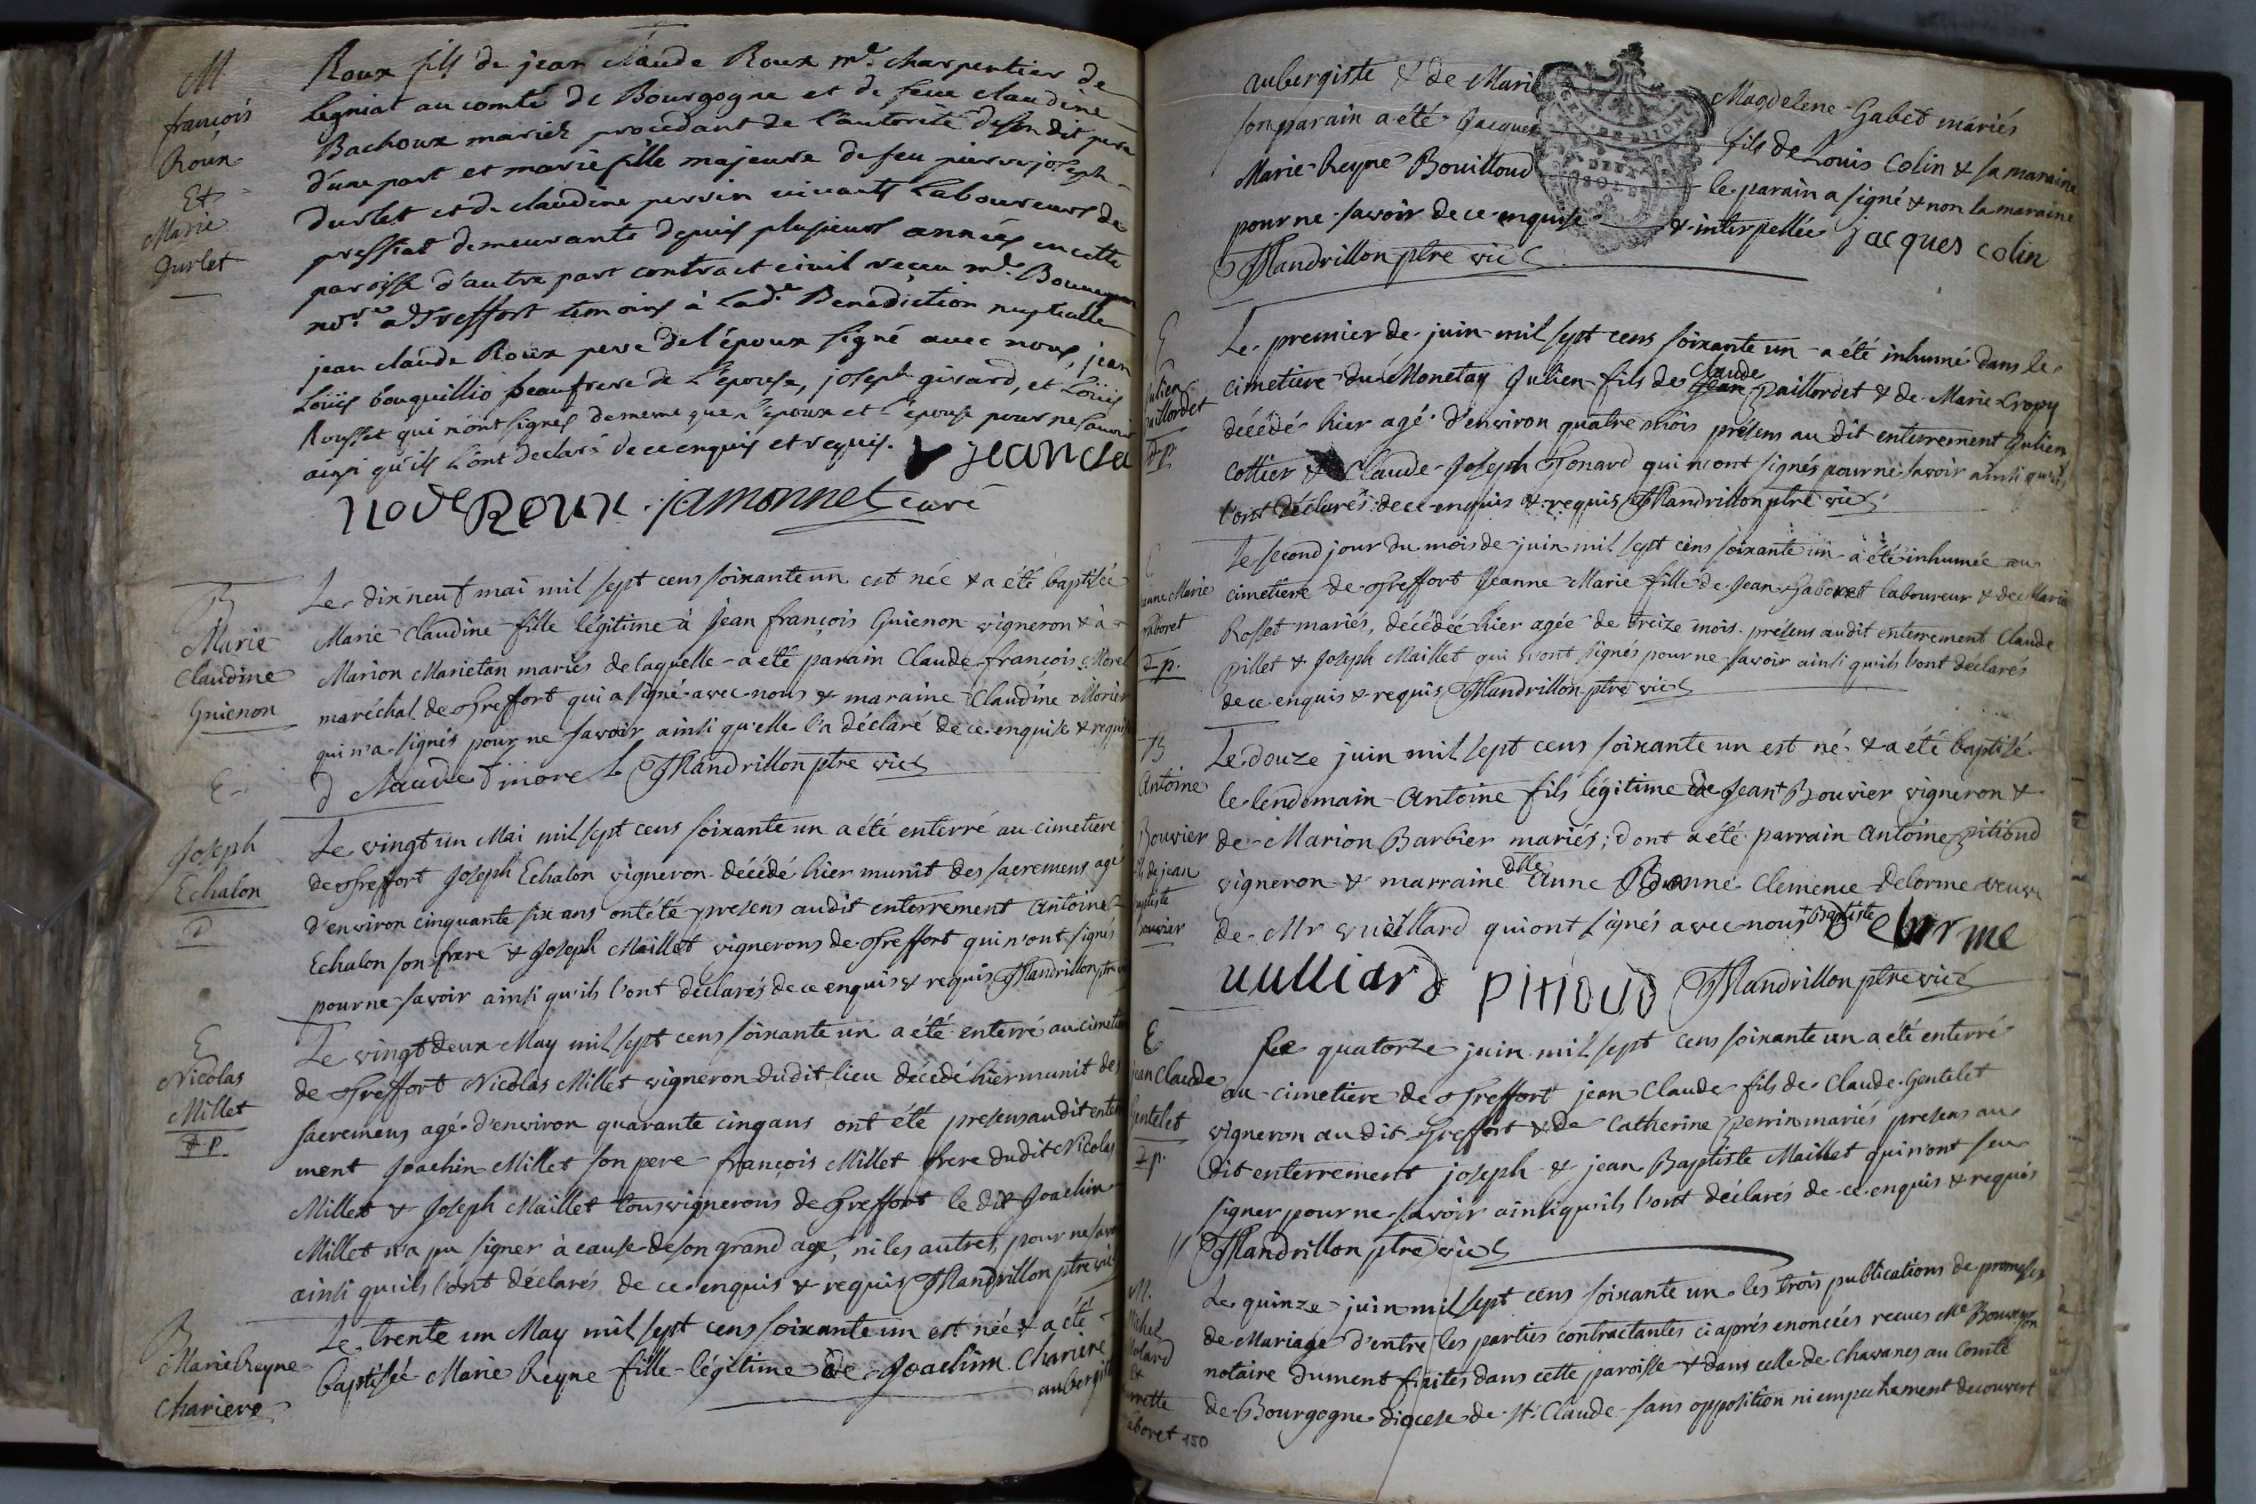 M
françois
Roux
Et
Marie
Durlet
Roux fils de jean Claude Roux md. charpentier de
Legniat au comté de Bourgogne et de feüe claudine
Bachoux mariez procedant de l'autorité deson dit pere
d'une part et marie fille majeure de feu pierre joseph
durlet et de claudine perrin vivants Laboureurs de
pressiat demeurante depuis plusieurs années en cette
paroisse d'autre part contract civil reçeu me.
nore. a Treffort temoins à Lade. Benediction nuptialle
jean claude Roux pere de l'époux signé avec nous, jean
Loüis bouquillio beaufrere de L'épouse, joseph girard, et Loüis
Rousset qui n'ont signés de meme que l'époux et l'épouse pour ne savoir
ainsi qu'ils L'ont declaré de ce enquis et requis. jean cla
node Roux jamonnet curé
B
Marie
Claudine
Guienon
Le dix neuf mai mil sept cens soixante un est née & a été baptisée
Marie Claudine fille légitime à Jean françois Guienon vigneron & à
Marion Marietan mariés de laquelle a été parain Claude françois Morel
maréchal de Treffort qui a signé avec nous & maraine Claudine Morier
qui n'a signés pour ne savoir ainsi qu'elle l'a déclaré de ce enquise & requise
Claude f morel Mandrillon ptre vic
E
Joseph
Echalon
Le vingt un Mai mil sept cens soixante un a été enterré au cimetiere
de Treffort Joseph Echalon vigneron décédé hier munit des sacremens agé
d'environ cinquante six ans ont été presens audit enterrement Antoine
Echalon son frere & Joseph Maillet vignerons de Treffort qui n'ont signés
pour ne savoir ainsi qu'ils l'ont déclarés de ce enquis & requis Mandrillon ptre
E
Nicolas
Millet
d p
Le vingt deux May mil sept cens soixante un a été enterré au cimetiere
de Treffort Nicolas Millet vigneron dudit lieu décédé hier munit des
sacremens agé d'environ quarante cinq ans ont été presens audit enterre
ment Joachin Millet son pere françois Millet frere dudit Nicolas
Millet & Joseph Maillet tous vignerons de Treffort le dit Joachin
Millet n'a pu signer à cause de son grand age, ni les autres pour ne savoir
ainsi qu'ils l'ont déclarés de ce enquis & requis Mandrillon ptre vic
B
Marie Reyne
Chariere
Le trente un May mil sept cens soixante un est née & a été
baptisée Marie Reyne fille légitime de Joachim Chariere
aubergiste
aubergiste & de Marie Magdelene Gabet mariés
son parain a été Jacques fils de Louis Colin & sa maraine
Marie Reyne Bouilloud le parain a signé & non la maraine
pour ne savoir de ce enquise & interpellée jacques colin
Mandrillon ptre vic
E
Julien
Paillordet
d p
Le premier de juin mil sept cens soixante un a été inhumé dans le
cimetiere du Monetay Julien fils de Claude Paillordet & de Marie Cropy
décédé hier agé d'environ quatre mois présens au dit enterrement Julien
Cottier & Claude Joseph Tonard qui n'ont signés pour ne savoir ainsi qu'ils
l'ont déclarés de ce enquis & requis Mandrillon ptre vic
E
Jeanne Marie
Raboret
d p.
Le second jour du mois de juin mil sept cens soixante un a été inhumée au
cimetiere de Treffort Jeanne Marie fille de Jean Raboret laboureur & de Marie
Rosset mariés, décédée hier agée de treize mois. présens au dit enterrement Claude
Pillet & Joseph Maillet qui n'ont signés pour ne savoir ainsi qu'ils l'ont déclarés
de ce enquis & requis Mandrillon ptre vic
B
Antoine
Bouvier
fils de jean
baptiste
bouvier
Le douze juin mil sept cens soixante un est né & a été baptisé
le lendemain Antoine fils légitime de Jean + Bouvier vigneron &
de Marion Barbier mariés; dont a été parrain Antoine Pitioud
vigneron & marraine dlle Anne Clemence Delorme veuve
de Mr vuilliard qui ont signés avec nous + Baptiste Delorme
vulliard pitioud Mandrillon ptre vic
E
jean Claude
Gentelet
d p.
Le quatorze juin mil sept cens soixante un a été enterré
au cimetiere de Treffort jean Claude fils de Claude Gentelet
vigneron au dit Treffort & de Catherine Perrin mariés presens au
dit enterrement joseph & jean Baptiste Maillet qui n'ont seu
signer pour ne savoir ainsi qu'ils l'ont déclarés de ce enquis & requis
Mandrillon ptre vic
M.
Michel
Et
Raboret 150
Le quinze juin mil sept cens soixante un les trois publications de promesses
de Mariage d'entre les parties contractantes ci aprés enoncées recues Me
notaire dument faites dans cette paroisse & dans celle de Chavanes au Comté
de Bourgogne diocese de St. Claude sans opposition ni empechement decouvert